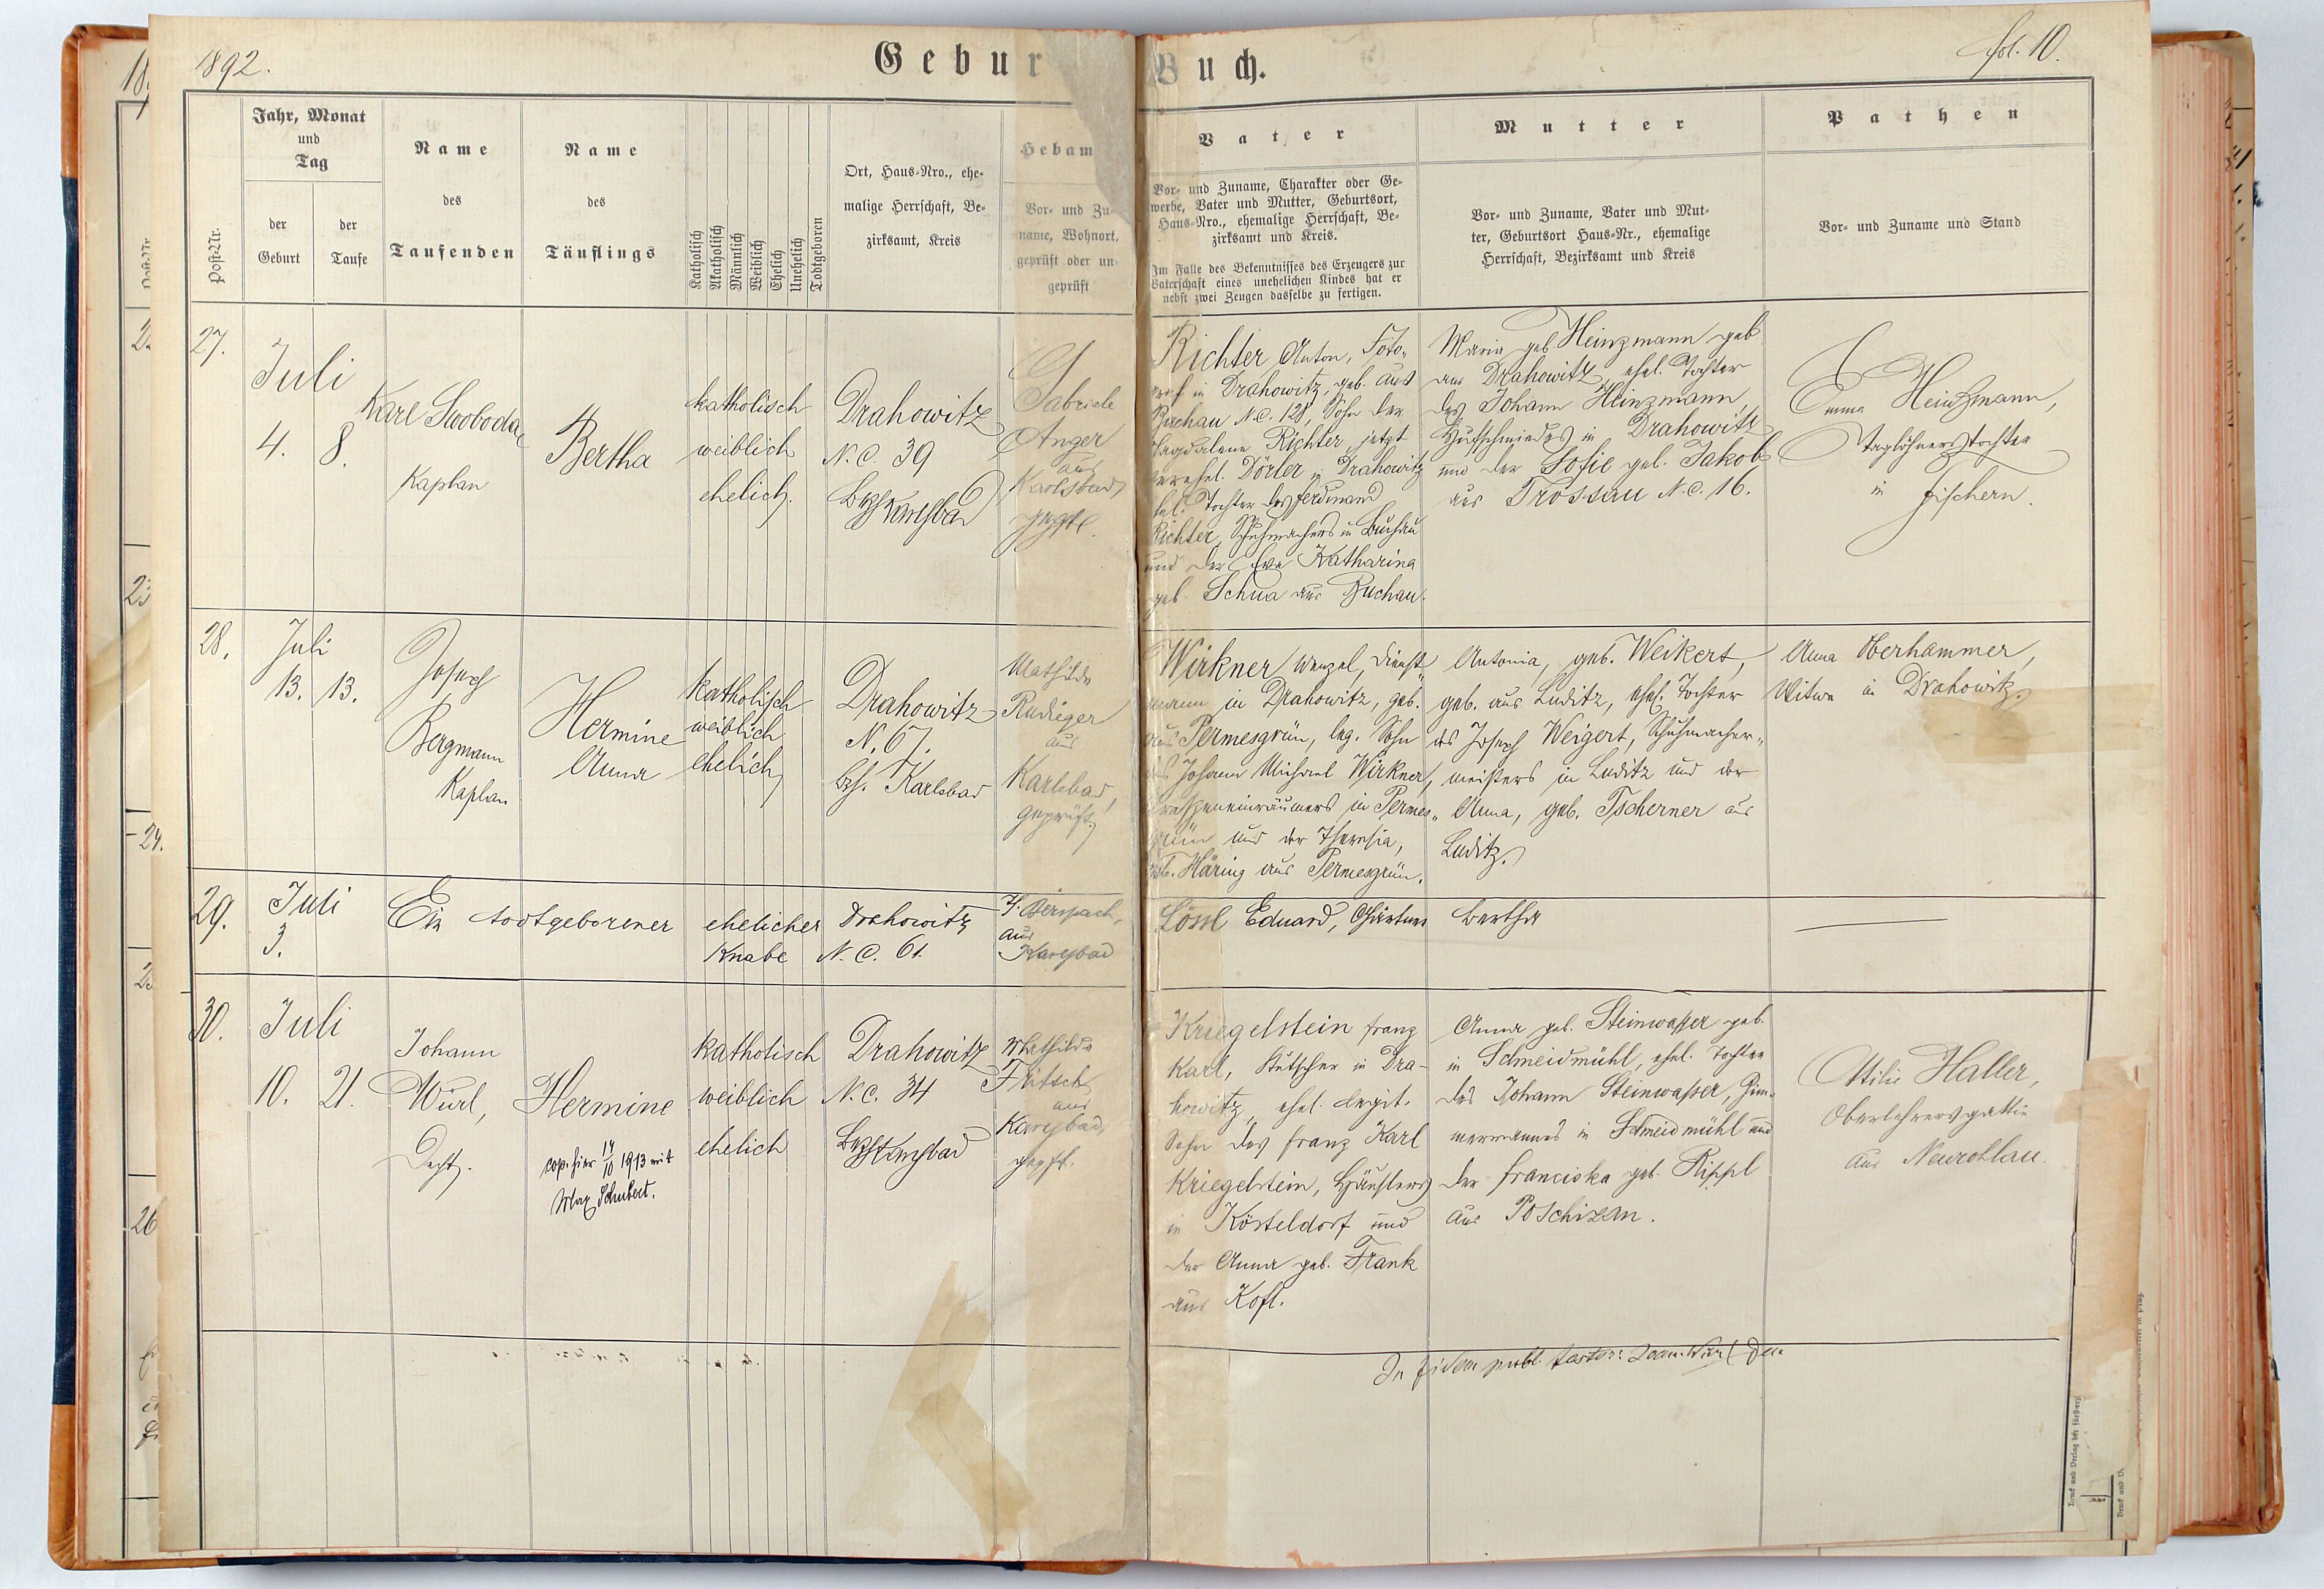 1892.
Geburts-Buch.
fol. 10.
Post-Nr.
Jahr, Monat
und
Tag
der
Geburt
der
Taufe
Name
des
Taufenden
Name
des
Täuflings
Katholisch
Akatholisch
Männlich
Weiblich
Ehelich
Unehelich
Todtgeboren
Ort, Haus-Nro., ehe-
malige Herrschaft, Be-
zirksamt, Kreis
Hebam
Vor- und Zu-
name, Wohnort,
geprüft oder un-
geprüft
Vater
Vor- und Zuname, Charakter oder Ge-
werbe, Vater und Mutter, Geburtsort,
Haus-Nro., ehemalige Herrschaft, Be-
zirksamt und Kreis.
Im Falle des Bekenntnisses des Erzeugers zur
Vaterschaft eines unehelichen Kindes hat er
nebst zwei Zeugen dasselbe zu fertigen.
Mutter
Vor- und Zuname, Vater und Mut-
ter, Geburtsort Haus-Nr., ehemalige
Herrschaft, Bezirksamt und Kreis
Pathen
Vor- und Zuname und Stand
27.
Juli
4. 8.
Karl Swoboda,
Kaplan
Bertha
katholisch
weiblich
ehelich.
Drahowitz
N. C. 39
Bzh Karlsbad
Gabriele
Anger
aus
Karlsbad
gepft.
Richter Anton, Foto-
graf in Drahowitz, geb. aus
Buchau N.C. 128, Sohn der
Magdalena Richter, jetzt
verehel. Dörler in Drahowitz
ehel. Tochter des Ferdinand
Richter, Schuhmachers in Buchau
und der Eva Katharina
geb. Schua aus Buchau.
Maria geb. Heinzmann geb
aus Drahowitz, ehel. Tochter
des Johann Heinzmann,
Hufschmiedes in Drahowitz
und der Sofie geb. Jakob
aus Trossau N.C. 16.
Emma Heinzmann,
Taglöhnerstochter
in Fischern.
28.
Juli
13. 13.
Josef
Bergmann
Kaplan
Hermine
Anna
katholisch
weiblich
ehelich
Drahowitz
N. 67.
Bzh. Karlsbad
Mathilde
Rudiger
aus
Karlsbad,
geprüft.
Wirkner Wenzel, Dienst-
mann in Drahowitz, geb.
aus Permesgrün, leg. Sohn
des Johann Michael Wirkner,
Straßeneinräumers in Permes-
grün und der Theresia,
geb. Häring aus Permesgrün.
Antonia, geb. Weikert,
geb. aus Luditz, ehel. Tochter
des Josef Weigert, Schuhmacher-
meisters in Luditz und der
Anna, geb. Tscherner aus
Luditz.
Anna Oberhammer,
Witwe in Drahowitz.
29.
Juli
3.
Ein todtgeborener ehelicher
Knabe
Drahowitz
N. C. 61.
aus
Karlsbad
Lössl Eduard, Gärtner
Bertha
30.
Juli
10. 21.
Johann
Würl,
Decht.
Hermine
cop. hier 14/10 1913 mit
Max Schubert.
katholisch
weiblich
ehelich
Drahowitz
N. C. 34
Bzh Karlsbad
Mathilde
Fritsch
aus
Karlsbad,
gepft.
Kriegelstein Franz
Karl, Kutscher in Dra-
howitz, ehel. legit.
Sohn des Franz Karl
Kriegelstein, Häuslers
in Kösteldorf und
der Anna geb. Frank
aus Kofl.
Anna geb. Steinwasser geb.
in Schneidmühl, ehel. Tochter
des Johann Steinwasser, Zim-
mermannes in Schneidmühl und
der Franciska geb. Rippl
aus Poschizau.
Ottilie Haller,
Oberlehrersgattin
aus Neurohlau.
In fidem publ. testor: Joan. Würl Dec.